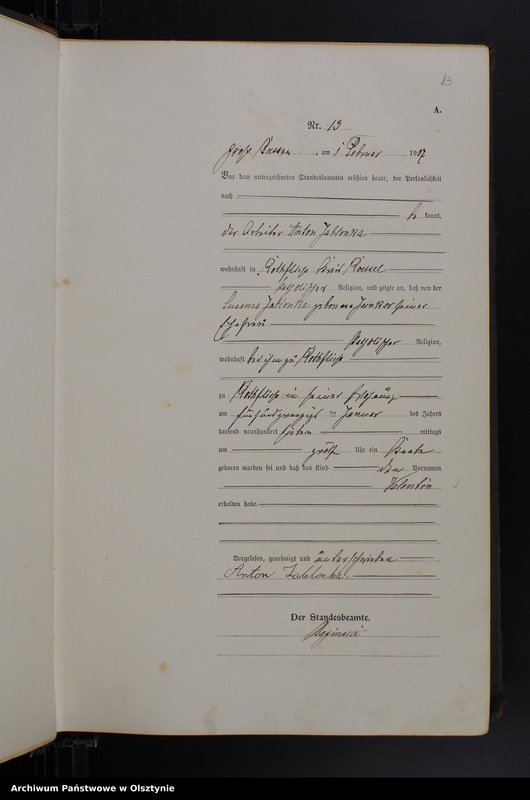 13
A.
Nr. 13
Groß am 1 Februar 1907
Vor dem unterzeichneten Standesbeamten erschien heute, der Persönlichkeit
nach
be kannt,
der Arbeiter Anton Jablonka
wohnhaft in Rothfließ Kreis Roessel
katholischer Religion, und zeigte an, daß von der
Susanna Jablonka geborene seiner
Ehefrau
katholischer Religion,
wohnhaft bei ihm zu Rothfließ
zu Rothfließ in seiner
am fünfundzwanzigsten Januar des Jahres
tausend neunhundert sieben mittags
um zwölf Uhr ein Knabe
geboren worden sei und daß das Kind den Vornamen
Valentin
erhalten habe.
Vorgelesen, genehmigt und unterschrieben
Anton Jablonka
Der Standesbeamte.
Archiwum Państwowe w Olsztynie